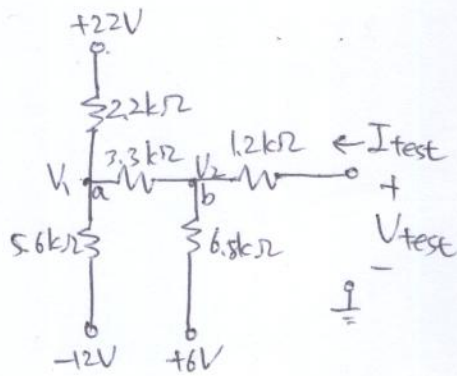 +22V
2.2kΩ
3.3kΩ
1.2kΩ
← Itest
V1
a
V2
b
+
Vtest
−
5.6kΩ
6.8kΩ
−12V
+6V